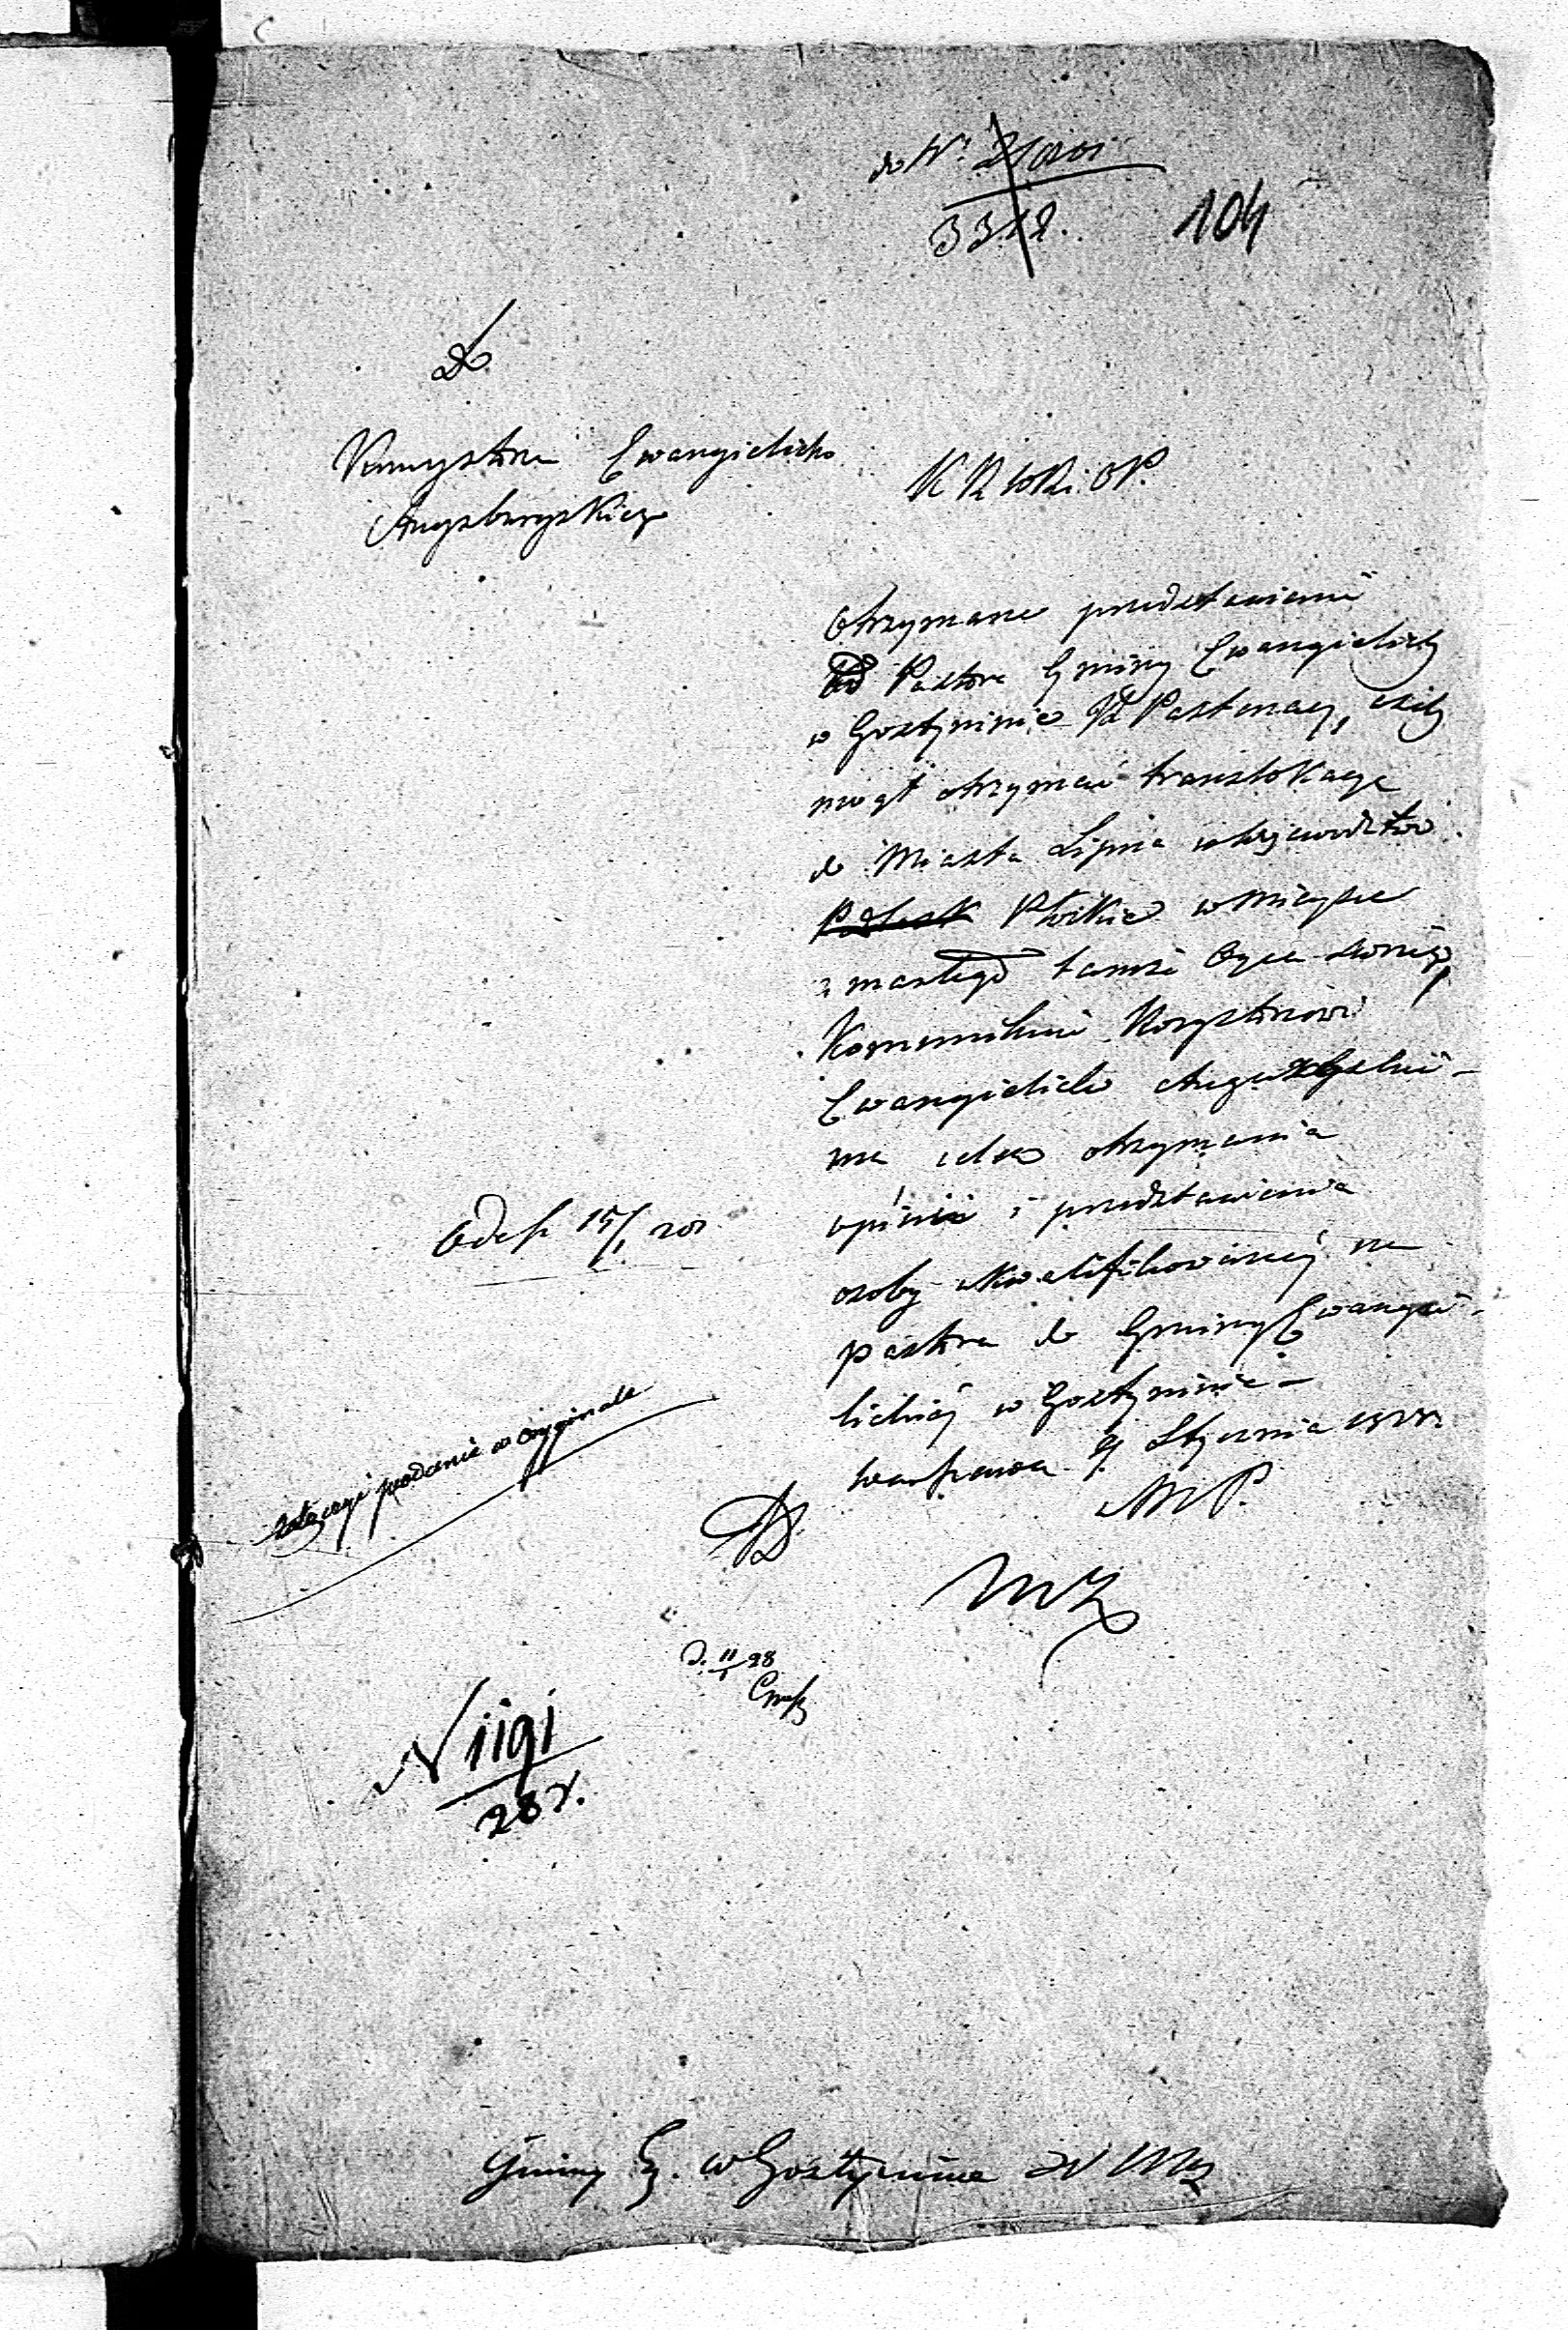 do Nr
3318.
104
Do
Konsystorza Ewangielicko
Augsburgskiego
K R W R i O P.
Otrzymane przedstawienie
od Pastora Gminy Ewangielickiej
w Gostyninie Pastenacy, ażeby
mógł otrzymać translokacyę
do Miasta Lipna w Wojewodztwo
Płockie w mieysce
zmarłego tamże Oyca swoiego,
Kommunikuie Konsystorzowi
Ewangielicko Augsburgskie-
mu celem otrzymania
opinii i przedstawienia
osoby ukwalifikowaney na
pastora do Gminy Ewangie-
lickiej w Gostyninie –
Warszawa 9 Stycznia 1828
M P.
Odesz 15/1 28
załączyć podanie w oryginale
D. 11/1 28
N 1191
28 r.
Gminy Ew. w Gostyninie